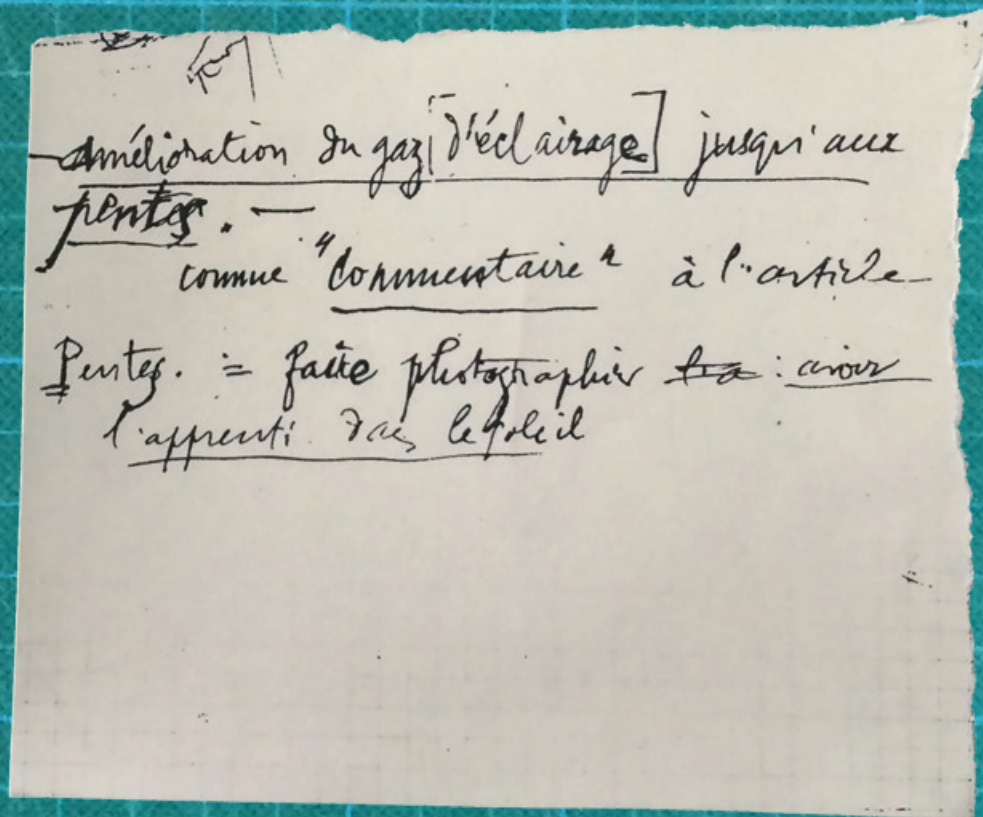 amélioration du gaz [d'éclairage] jusqu'aux
pentes. —
comme "Commentaire" à l'article
Pentes. = faire photographier : avoir
l'apprenti dans le soleil